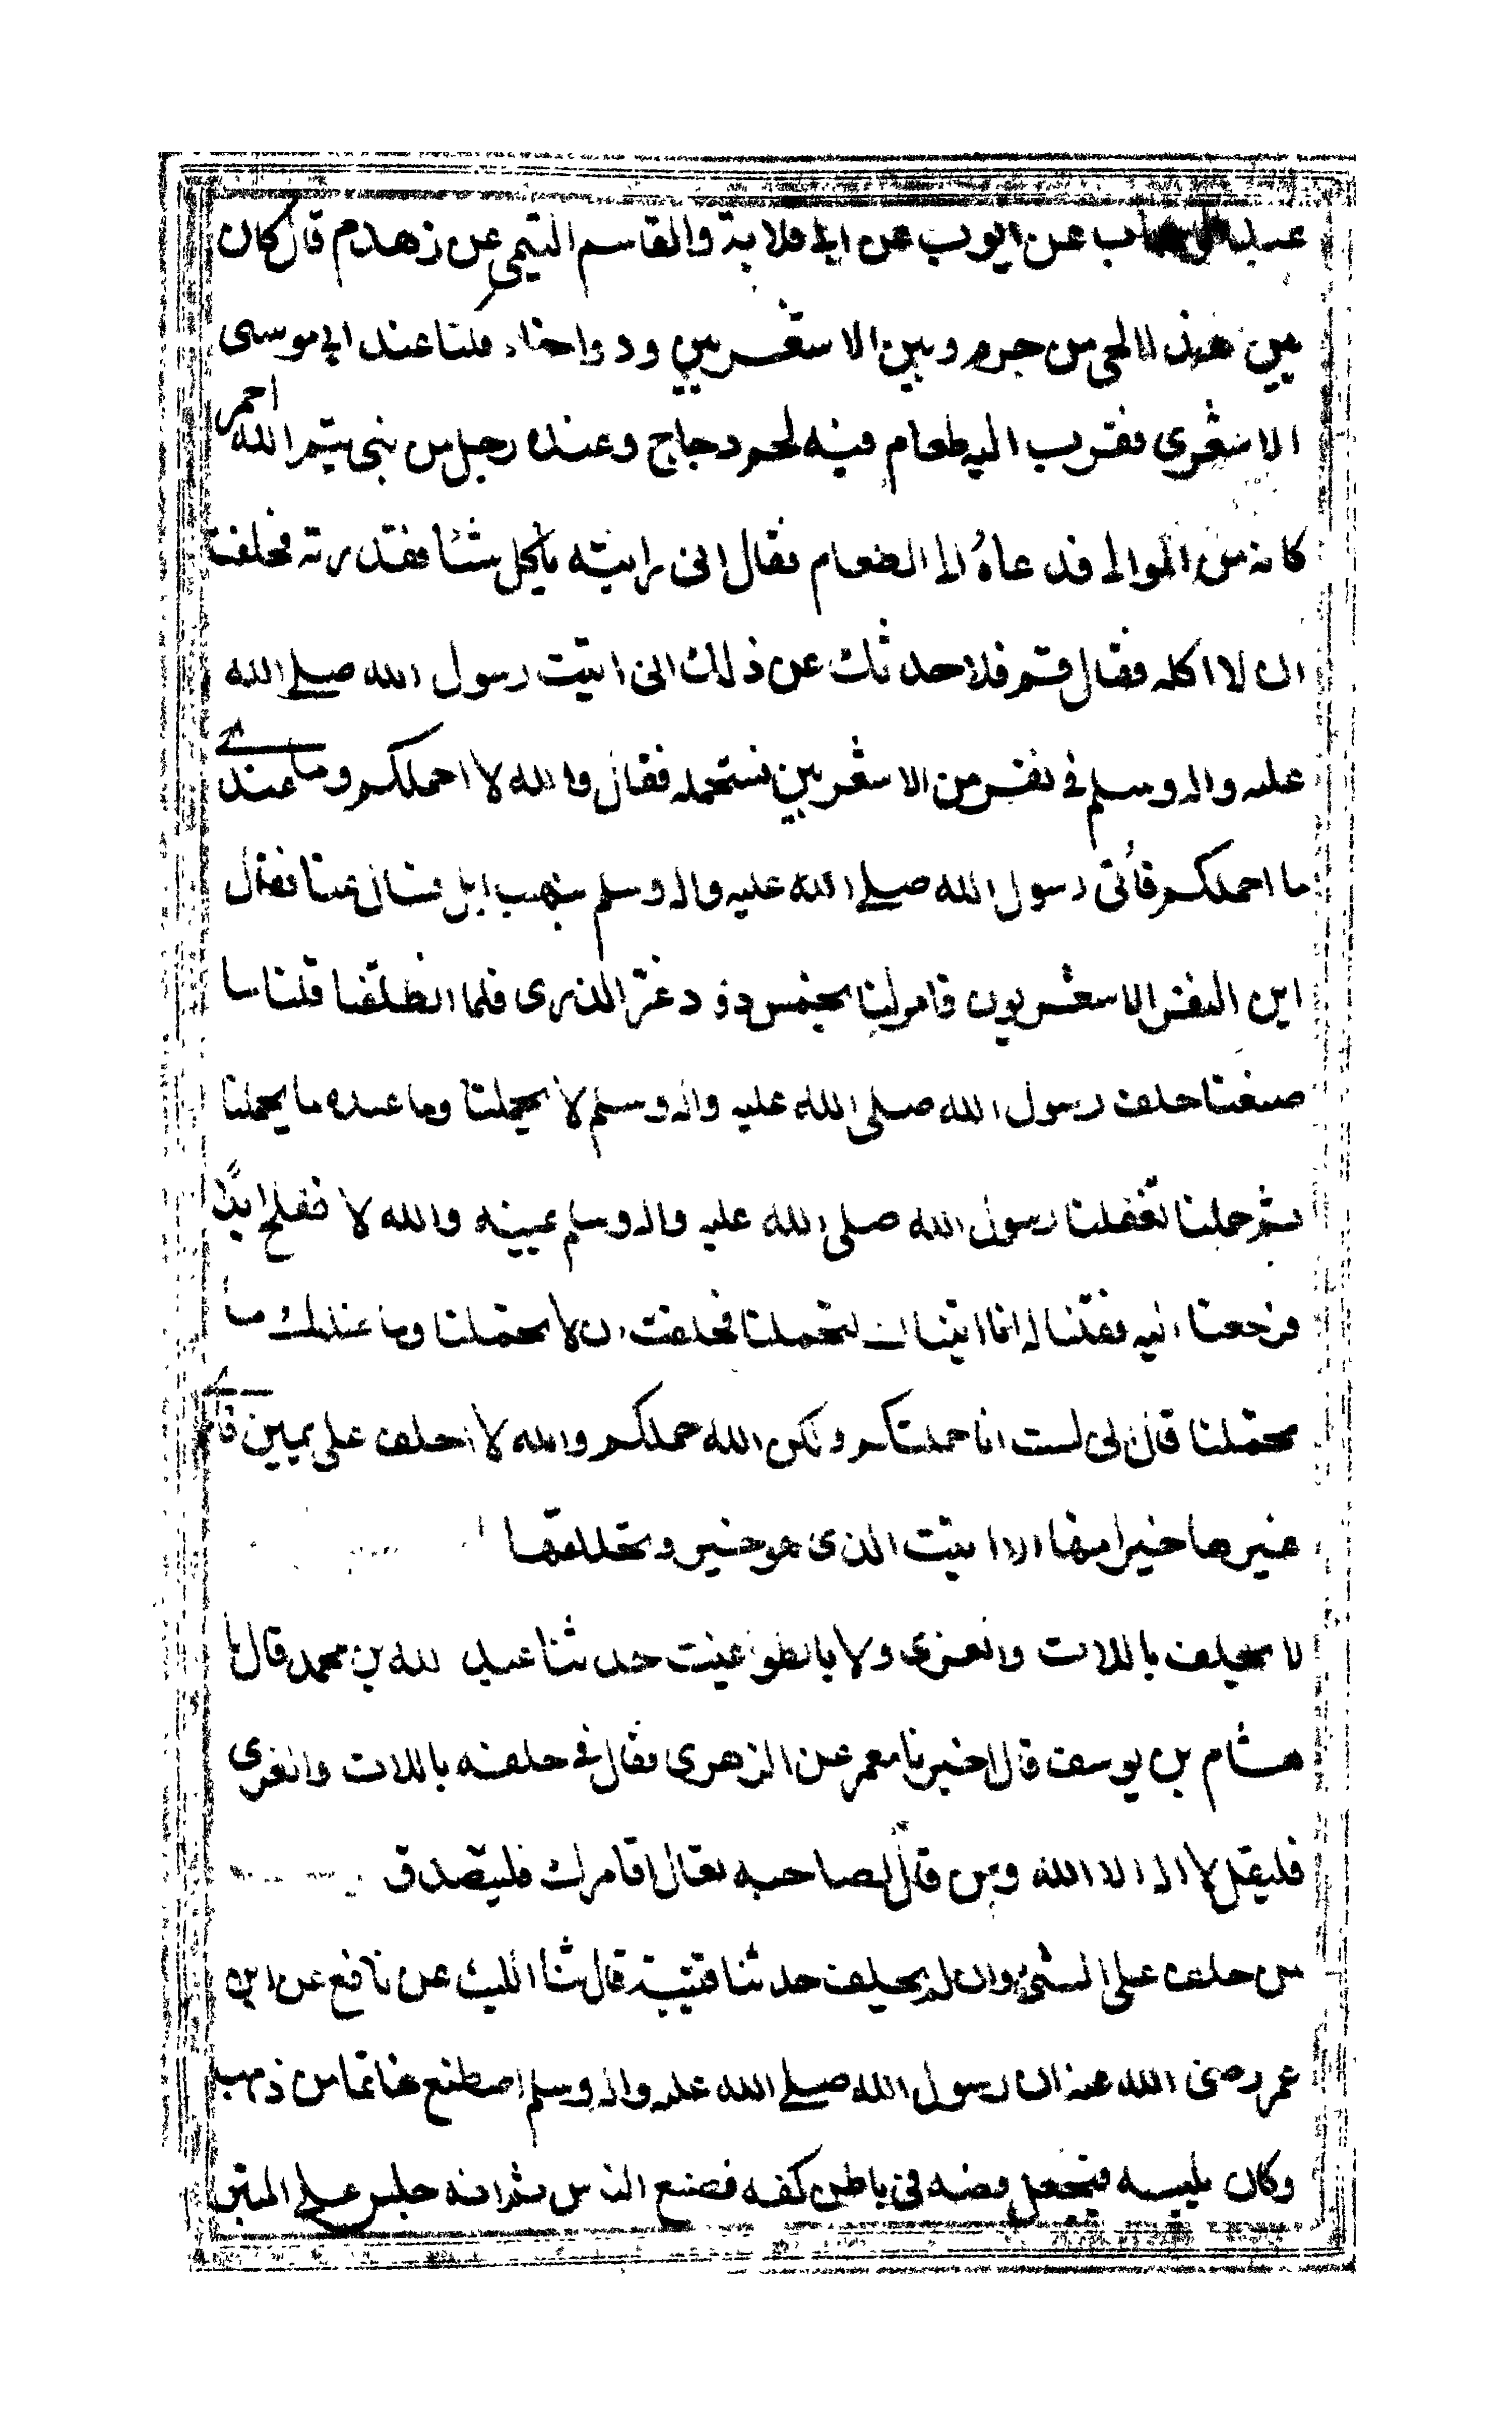 عبد الوهاب عن ايوب عن ابي قلابة والقاسم التيمي عن زهدم قال كان
بين هذا الحي من جرم وبين الاشعريين ود واخاء فكنا عند ابي موسى
الاشعري فقرب اليه طعام فيه لحم دجاج وعنده رجل من بني تيم الله احمر
كانه من الموالي فدعاه الى الطعام فقال اني رايته ياكل شئا فقذرته فحلفت
ان لا اكله فقال قم فلاحدثك عن ذلك اني اتيت رسول الله صلى الله
عليه واله وسلم في نفر من الاشعريين نستحمله فقال والله لا احملكم وما عندي
ما احملكم فأتى رسول الله صلى الله عليه واله وسلم بنهب ابل فسال عنا فقال
اين النفر الاشعريون فامر لنا بخمس ذود غر الذرى فلما انطلقنا قلنا ما
صنعنا حلف رسول الله صلى الله عليه واله وسلم لا يحملنا وما عنده ما يحملنا
ثم حملنا تغفلنا رسول الله صلى الله عليه واله وسلم يمينه والله لا نفلح ابدًا
فرجعنا اليه فقلنا له انا اتيناك لتحملنا فحلفت ان لا تحملنا وما عندك ما
تحملنا قال اني لست انا حملتكم ولكن الله حملكم والله لا احلف على يمين فارى
غيرها خيرا منها الا اتيت الذي هو خير وتحللتها
لا يحلف باللات والعزى ولا بالطواغيت حدثنا عبد الله بن محمد قال نا
هشام بن يوسف قال اخبرنا معمر عن الزهري فقال في حلفه باللات والعزى
فليقل لا اله الا الله ومن قال لصاحبه تعال اقامرك فليتصدق
من حلف على الشئ وان لم يحلف حدثنا قتيبة قال ثنا الليث عن نافع عن ابن
عمر رضي الله عنه ان رسول الله صلى الله عليه واله وسلم اصطنع خاتما من ذهب
وكان يلبسه فيجعل فصه في باطن كفه فصنع الناس ثم انه جلس على المنبر